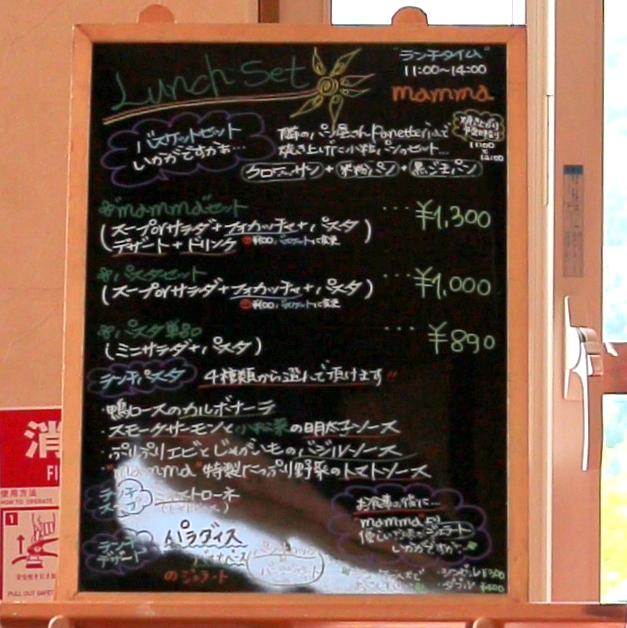 Lunch Set
"ランチタイム"
11:00〜14:00
mamma
バスケットセット
いかがですかぁ…
隣のパン屋さんPanetteriaで
焼き上げた小粒パンのセット…
クロワッサン + 米粉パン + 黒ごまパン
11:00
"mamma"セット ･･･ ¥1,300
(スープorサラダ+フォカッチャ+パスタ)
デザート+ドリンク
パスタセット ･･･ ¥1,000
(スープorサラダ+フォカッチャ+パスタ)
パスタ単品 ･･･ ¥890
(ミニサラダ+パスタ)
ランチパスタ 4種類から選んで頂けます!!
・鴨ロースのカルボナーラ
・スモークサーモンと小松菜の明太子ソース
・ぷりぷりエビとじゃがいものバジルソース
・"mamma"特製たっぷり野菜のトマトソース
ランチスープ
ミネストローネ
ランチデザート
パラダイス
のジェラート
お食事の後に…
mammaより
優しい
ジェラート
いかがですか
消
FI
使用方法
HOW TO OPERATE
1
PULL OUT SAFET